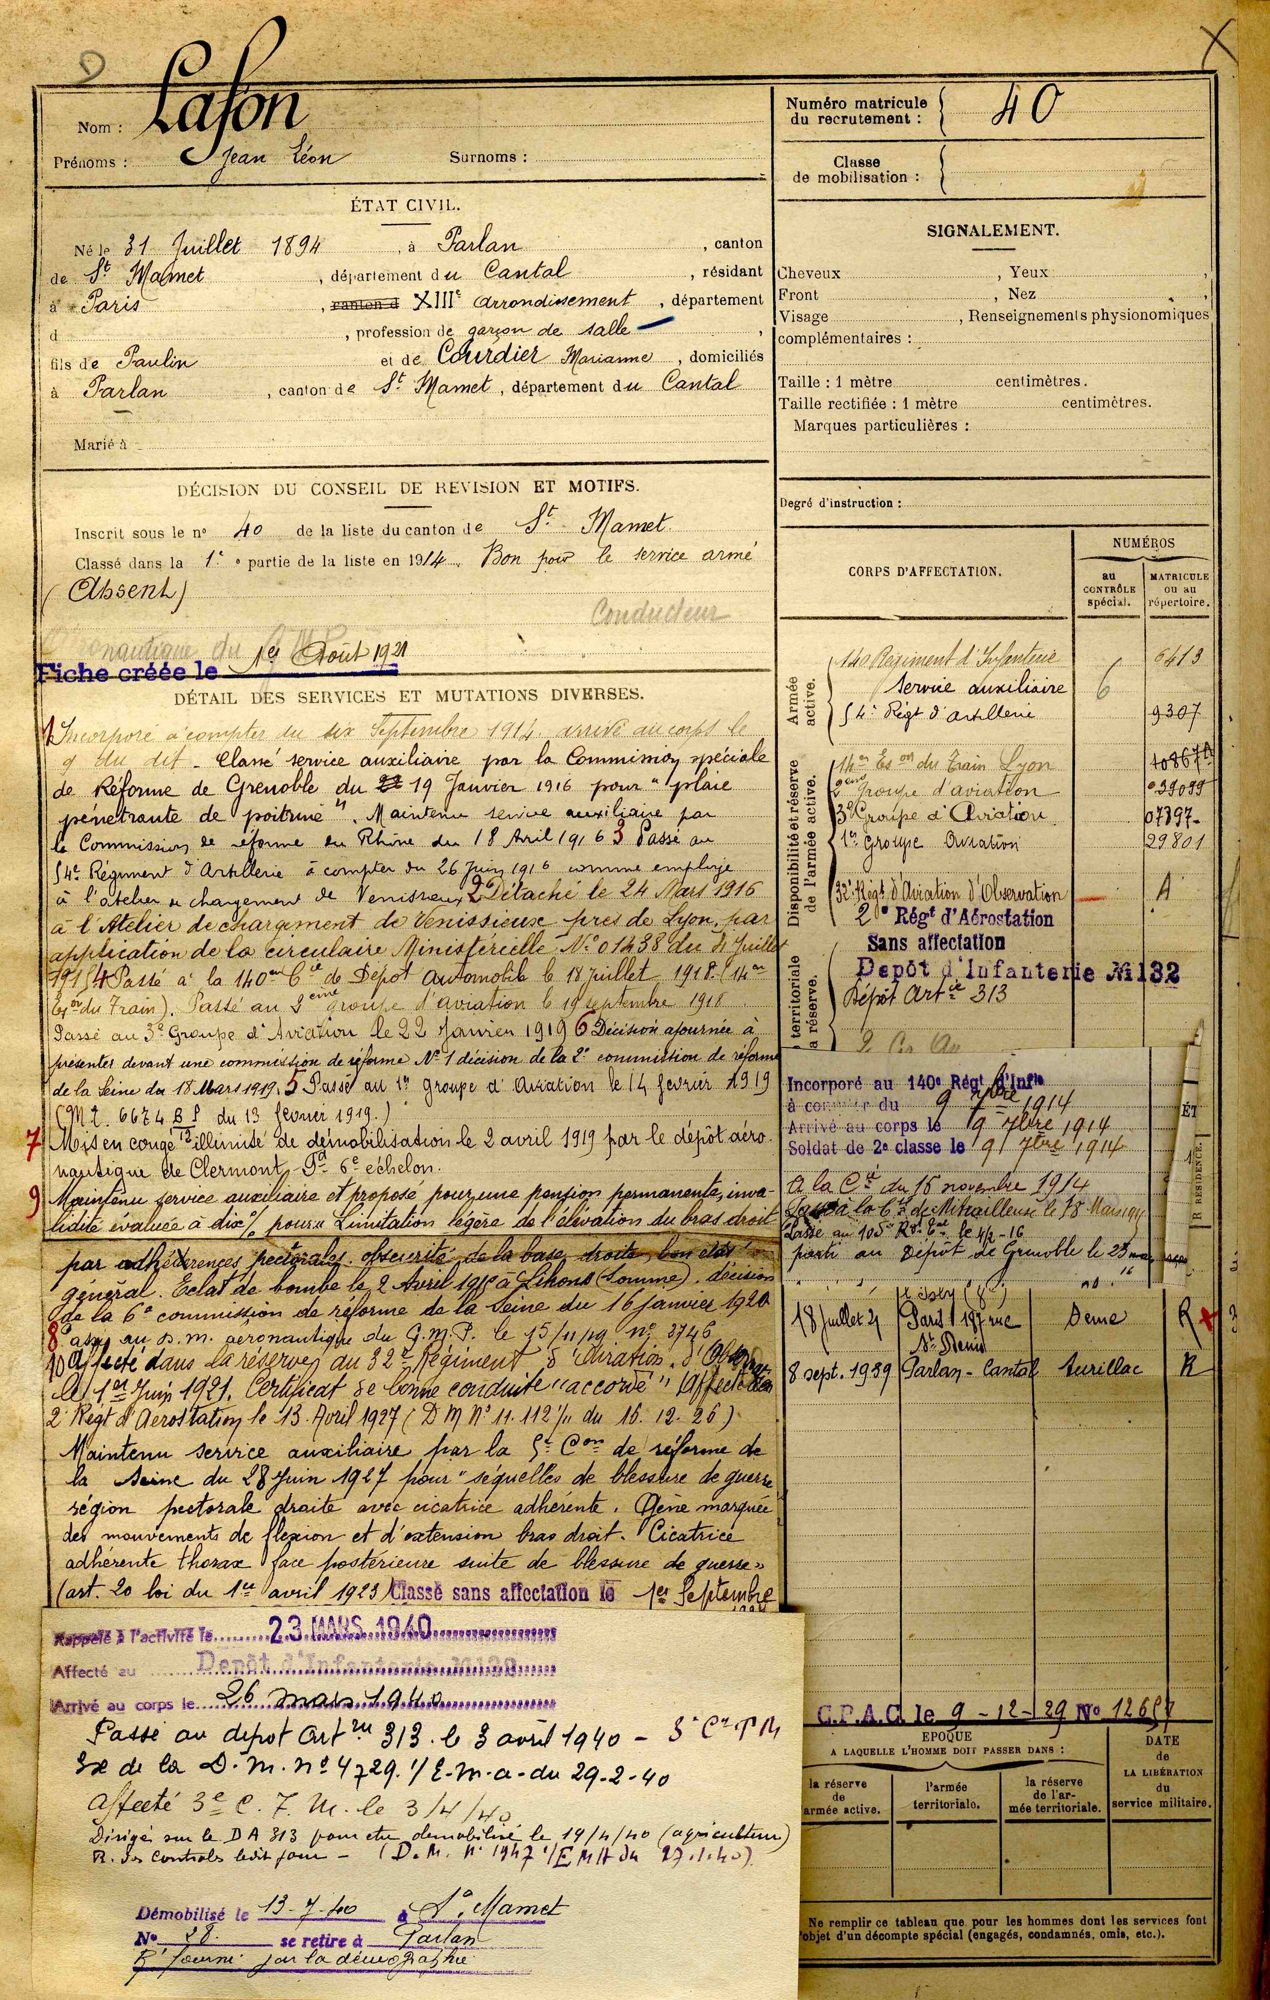 Nom : Lafon
Prénoms : Jean Léon Surnoms :
ÉTAT CIVIL.
Né le 31 Juillet 1894, à Parlan, canton
de St Mamet, département du Cantal, résidant
à Paris, canton d XIIIe arrondissement, département
d , profession de garçon de salle,
fils de Paulin et de Courdier Marianne, domiciliés
à Parlan, canton de St Mamet, département du Cantal
Marié à
DÉCISION DU CONSEIL DE REVISION ET MOTIFS.
Inscrit sous le no 40 de la liste du canton de St Mamet
Classé dans la 1e partie de la liste en 1914. Bon pour le service armé
(Absent)
Conducteur
nautique du
Fiche créée le 1er Août 1921
DÉTAIL DES SERVICES ET MUTATIONS DIVERSES.
1 Incorporé à compter du six Septembre 1914. arrivé au corps le
9 du dit - Classé service auxiliaire par la Commission spéciale
de Réforme de Grenoble du 19 Janvier 1916 pour "plaie
pénétrante de poitrine". Maintenu service auxiliaire par
la Commission de réforme du Rhône du 18 Avril 1916 3 Passé au
54e Régiment d'Artillerie à compter du 26 Juin 1916 comme employé
à l'atelier de chargement de Venissieux 2o Détaché le 24 Mars 1916
à l'Atelier de chargement de Venissieux près de Lyon, par
application de la circulaire Ministérielle No 01438 du 31 Juillet
1915 4 Passé à la 140me Cie de Dépôt Automobile le 18 juillet 1918. (14me
Eson du Train). Passé au 2eme groupe d'aviation le 19 septembre 1918
Passé au 3e Groupe d'Aviation le 22 Janvier 1919 6 Décision ajournée à
présenter devant une commission de réforme No 1 décision de la 2e commission de réforme
de la Seine du 18 Mars 1919. 5 Passé au 1er groupe d'Aviation le 14 février 1919
(Mt. 6674 BP/12 du 13 février 1919.)
7 Mis en congé illimité de démobilisation le 2 avril 1919 par le dépôt aéro-
nautique de Clermont Fd 6e échelon.
9 Maintenu service auxiliaire et proposé pour une pension permanente, inva-
lidité évaluée à dix % pour "Limitation légère de l'élévation du bras droit
par adhérences pectorales. obscurité de la base droite, bon état
général. Eclat de bombe le 2 Avril 1915 à Lihons (Somme). décision
de la 6e commission de réforme de la Seine du 16 janvier 1920
8 Passé au D.M. aéronautique du G.M.P. le 15/11/19 no 3746
10 Affecté dans la réserve au 32e Régiment d'Aviation d'Observation
le 1er Juin 1921. Certificat de bonne conduite "accordé" Affectation
2e Régt d'Aérostation le 13 Avril 1927 (DM No 11.112 1/11 du 16.12.26)
Maintenu service auxiliaire par la 5e Con de réforme de
la Seine du 28 Juin 1927 pour "séquelles de blessure de guerre
région pectorale droite avec cicatrice adhérente. Gêne marquée
des mouvements de flexion et d'extension bras droit. Cicatrice
adhérente thorax face postérieure suite de blessure de guerre"
(art. 20 loi du 1er avril 1923) Classé sans affectation le 1er Septembre
Rappelé à l'activité le 23 MARS 1940
Affecté au Depôt d'Infanterie N 132
Arrivé au corps le 26 mars 1940
Passé au dépôt Artie 313 le 3 avril 1940 -
Ex de la D.M. no 4729.1/E.M.A. du 29-2-40
Affecté 3e C.T.M. le 3/4/40
Dirigé sur le DA 313 pour être démobilisé le 19/4/40 (agriculteur)
R. des controles ledit jour - (D.M. No 1947 1/EMA du 27.1.40)
Démobilisé le 13-7-40 à St Mamet
No 28 se retire à Parlan
Rt fourni par la démographie
Numéro matricule du recrutement : 40
Classe de mobilisation :
SIGNALEMENT.
Cheveux , Yeux ,
Front , Nez ,
Visage , Renseignements physionomiques
complémentaires :
Taille : 1 mètre centimètres.
Taille rectifiée : 1 mètre centimètres.
Marques particulières :
Degré d'instruction :
CORPS D'AFFECTATION.
NUMÉROS
au CONTRÔLE spécial.
MATRICULE ou au répertoire.
Armée active.
140 Régiment d'Infanterie 6413
Service auxiliaire 6
54e Régt d'artillerie 9307
Disponibilité et réserve de l'armée active.
14me Eson du Train Lyon
2eme groupe d'aviation 039099
3e Groupe d'Aviation 07397
1er groupe Aviation 29801
32e Régt d'Aviation d'Observation A
2e Régt d'Aérostation
territoriale
a réserve.
Sans affectation
Depôt d'Infanterie No 132
Dépôt Artie 313
Incorporé au 140e Régt d'Infie
à compter du 9 7bre 1914
Arrivé au corps le 9 7bre 1914
Soldat de 2e classe le 9 7bre 1914
A la Cie du 15 novembre 1914
Passé à la Cie de Mitrailleuse le 18 Mars 1915
Passé au 105e le 4/2-16
parti au Dépôt de Grenoble le 23
ÉT
R RESIDENCE.
18 Juillet 21 Paris 197 rue St Denis Seine R
8 sept. 1939 Parlan - Cantal Aurillac R
C.P.A.C. le 9-12-29 No 12657
EPOQUE
A LAQUELLE L'HOMME DOIT PASSER DANS :
la réserve de armée active.
l'armée territoriale.
la réserve de l'armée territoriale.
DATE de LA LIBÉRATION du service militaire.
Ne remplir ce tableau que pour les hommes dont les services font
l'objet d'un décompte spécial (engagés, condamnés, omis, etc.).